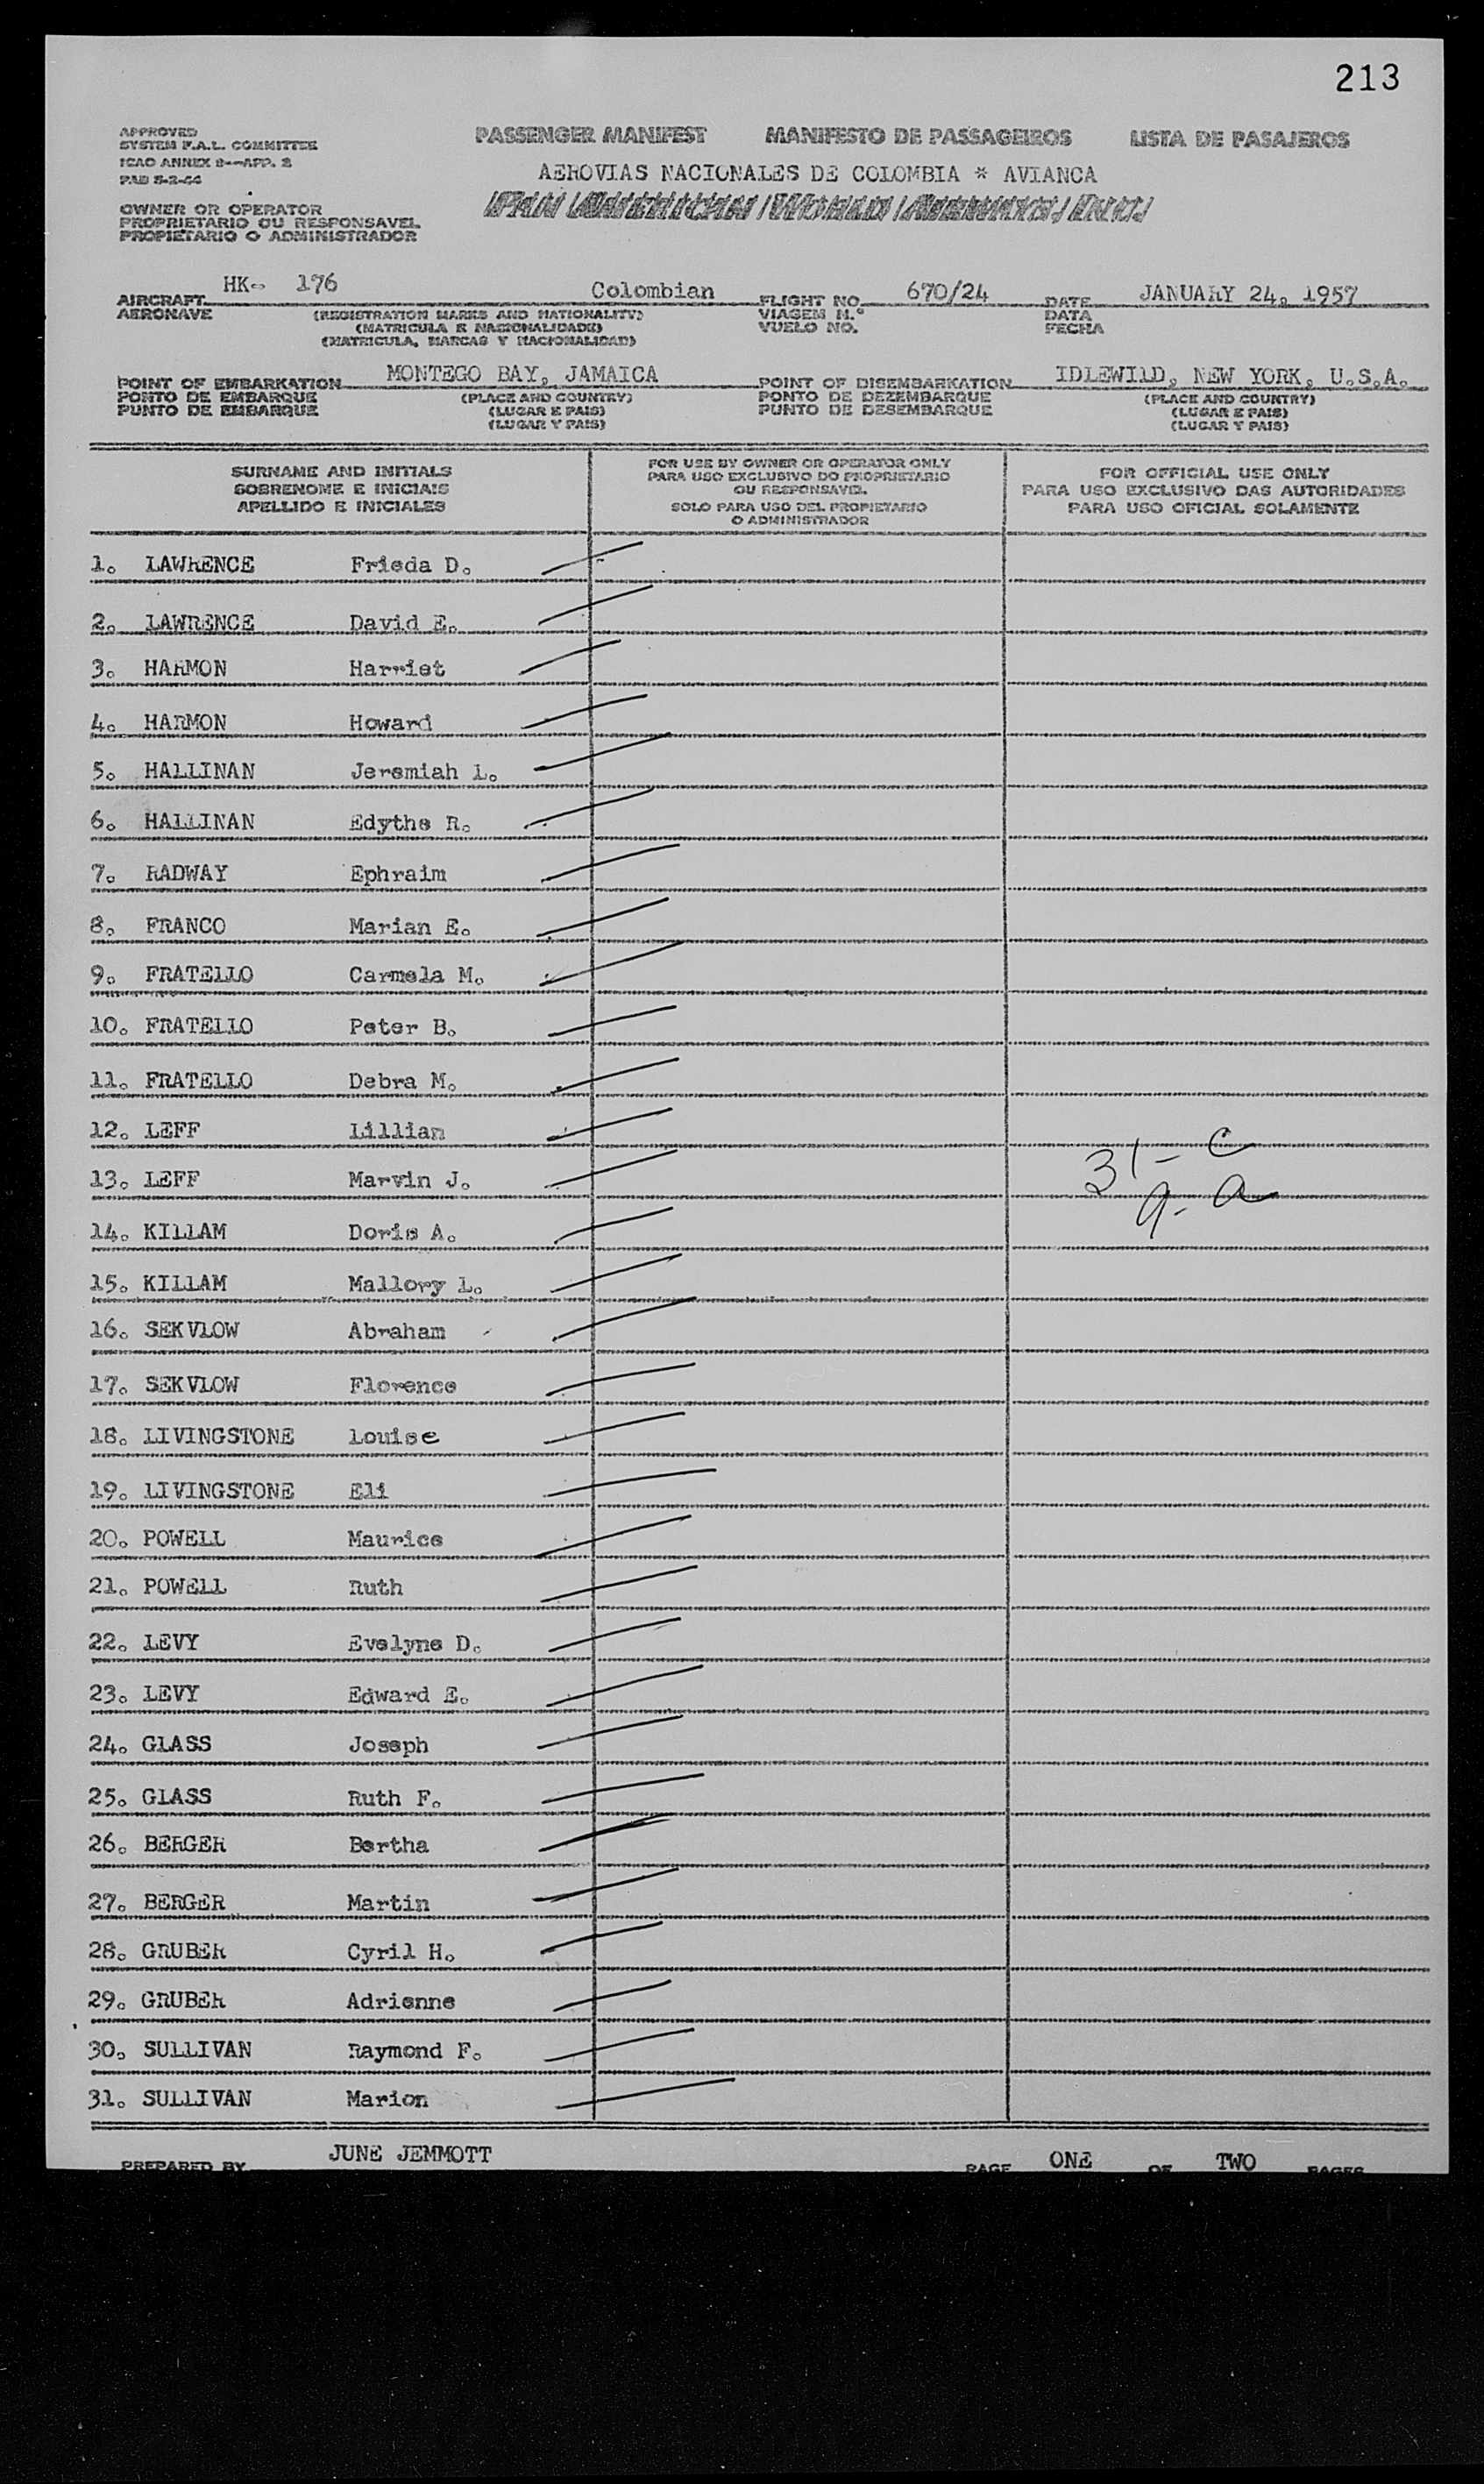 213
APPROVED
SYSTEM F.A.L. COMMITTEE
ICAO ANNEX 9--APP. 2
PAB 5-2-44
PASSENGER MANIFEST MANIFESTO DE PASSAGEIROS LISTA DE PASAJEROS
AEROVIAS NACIONALES DE COLOMBIA * AVIANCA
OWNER OR OPERATOR
PROPRIETARIO OU RESPONSAVEL
PROPIETARIO O ADMINISTRADOR
HK- 176 Colombian 670/24 JANUARY 24, 1957
AIRCRAFT FLIGHT NO. DATE
AERONAVE (REGISTRATION MARKS AND NATIONALITY) VIAGEM N.º DATA
(MATRICULA E NACIONALIDADE) VUELO NO. FECHA
(MATRICULA, MARCAS Y NACIONALIDAD)
MONTEGO BAY, JAMAICA IDLEWILD, NEW YORK, U.S.A.
POINT OF EMBARKATION POINT OF DISEMBARKATION
PONTO DE EMBARQUE (PLACE AND COUNTRY) PONTO DE DEZEMBARQUE (PLACE AND COUNTRY)
PUNTO DE EMBARQUE (LUGAR E PAIS) PUNTO DE DESEMBARQUE (LUGAR E PAIS)
(LUGAR Y PAIS) (LUGAR Y PAIS)
SURNAME AND INITIALS
SOBRENOME E INICIAIS
APELLIDO E INICIALES
FOR USE BY OWNER OR OPERATOR ONLY
PARA USO EXCLUSIVO DO PROPRIETARIO
OU RESPONSAVEL
SOLO PARA USO DEL PROPIETARIO
O ADMINISTRADOR
FOR OFFICIAL USE ONLY
PARA USO EXCLUSIVO DAS AUTORIDADES
PARA USO OFICIAL SOLAMENTE
1. LAWRENCE Frieda D.
2. LAWRENCE David E.
3. HARMON Harriet
4. HARMON Howard
5. HALLINAN Jeremiah L.
6. HALLINAN Edythe R.
7. RADWAY Ephraim
8. FRANCO Marian E.
9. FRATELLO Carmela M.
10. FRATELLO Peter B.
11. FRATELLO Debra M.
12. LEFF Lillian
31 - C
13. LEFF Marvin J.
9 - a
14. KILLAM Doris A.
15. KILLAM Mallory L.
16. SEKVLOW Abraham
17. SEKVLOW Florence
18. LIVINGSTONE Louise
19. LIVINGSTONE Eli
20. POWELL Maurice
21. POWELL Ruth
22. LEVY Evelyne D.
23. LEVY Edward E.
24. GLASS Joseph
25. GLASS Ruth F.
26. BERGER Bertha
27. BERGER Martin
28. GRUBER Cyril H.
29. GRUBER Adrienne
30. SULLIVAN Raymond F.
31. SULLIVAN Marion
PREPARED BY JUNE JEMMOTT PAGE ONE OF TWO PAGES